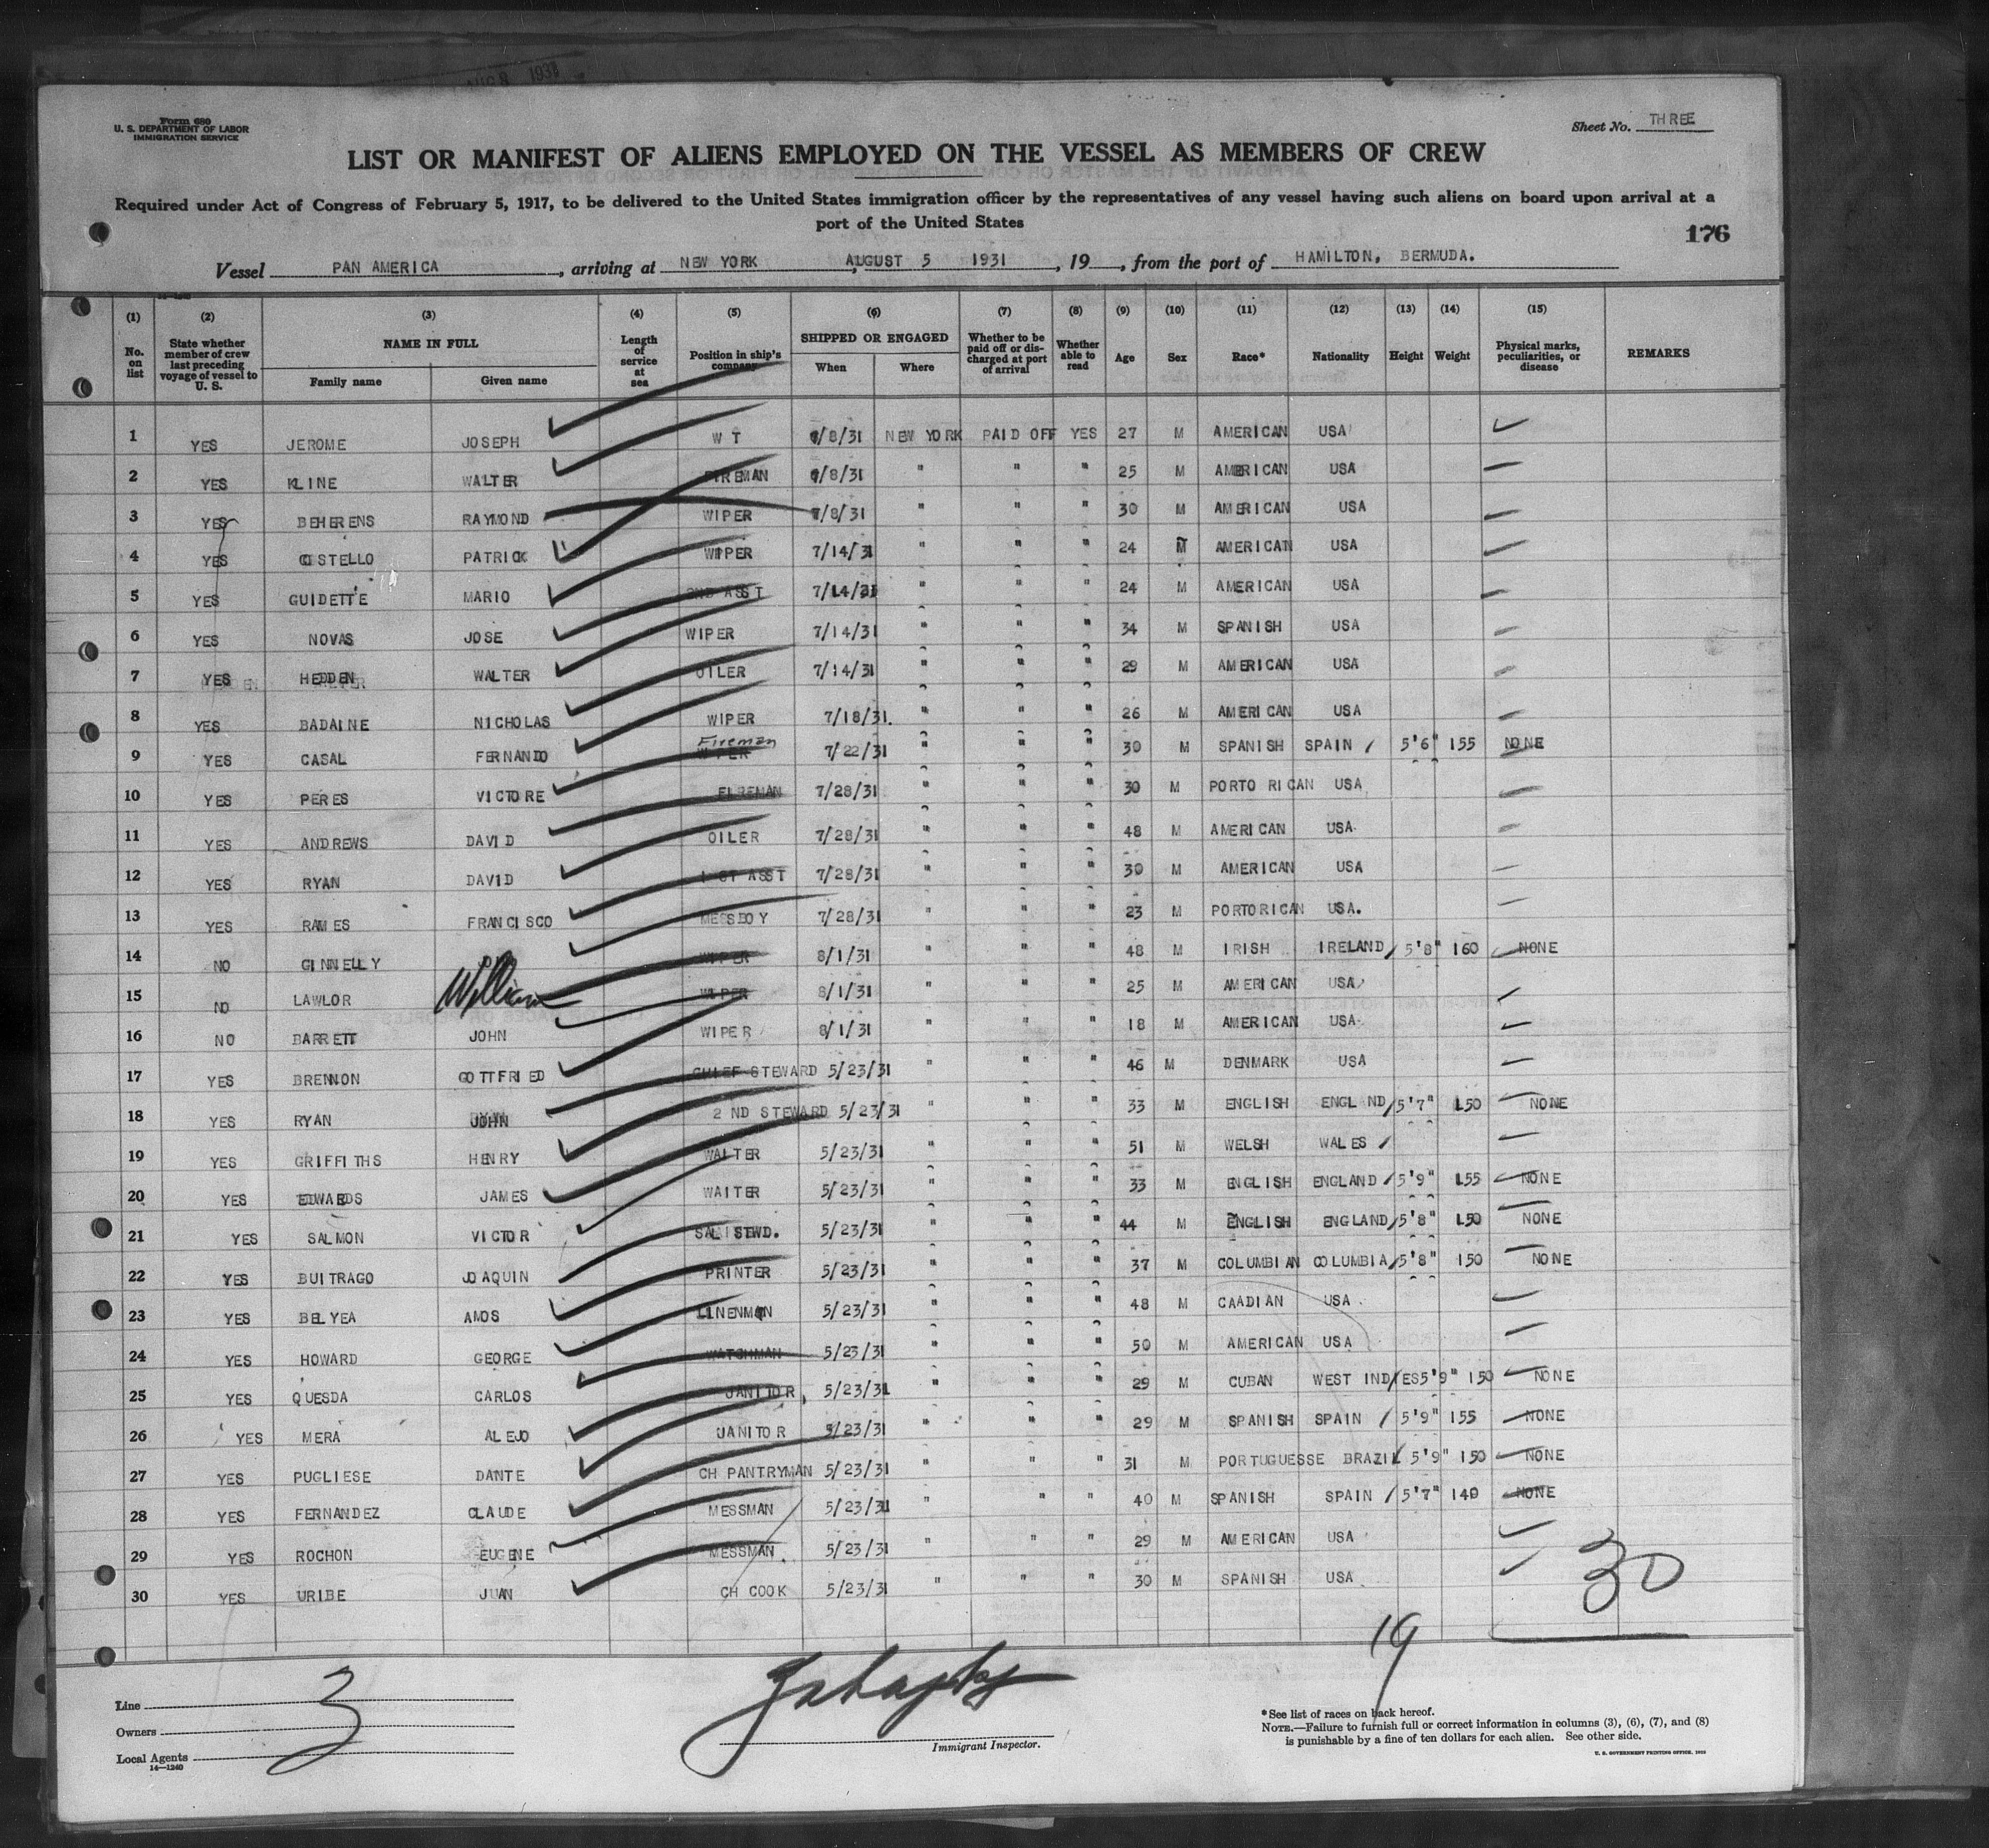 AUG 8 1931
Form 680
U. S. DEPARTMENT OF LABOR
IMMIGRATION SERVICE
Sheet No. THREE
LIST OR MANIFEST OF ALIENS EMPLOYED ON THE VESSEL AS MEMBERS OF CREW
Required under Act of Congress of February 5, 1917, to be delivered to the United States immigration officer by the representatives of any vessel having such aliens on board upon arrival at a
port of the United States
176
Vessel PAN AMERICA, arriving at NEW YORK AUGUST 5 1931, 19, from the port of HAMILTON, BERMUDA.
(1) No. on list (2) State whether member of crew last preceding voyage of vessel to U. S. (3) NAME IN FULL Family name Given name (4) Length of service at sea (5) Position in ship's company (6) SHIPPED OR ENGAGED When Where (7) Whether to be paid off or discharged at port of arrival (8) Whether able to read (9) Age (10) Sex (11) Race* (12) Nationality (13) Height (14) Weight (15) Physical marks, peculiarities, or disease REMARKS
1 YES JEROME JOSEPH W T /8/31 NEW YORK PAID OFF YES 27 M AMERICAN USA
2 YES KLINE WALTER FIREMAN /8/31 " " " 25 M AMERICAN USA
3 YES BEHERENS RAYMOND WIPER 7/8/31 " " " 30 M AMERICAN USA
4 YES COSTELLO PATRICK WIPER 7/14/31 " " " 24 M AMERICAN USA
5 YES GUIDETTE MARIO 2ND ASST 7/14/31 " " " 24 M AMERICAN USA
6 YES NOVAS JOSE WIPER 7/14/31 " " " 34 M SPANISH USA
7 YES HEDDEN WALTER OILER 7/14/31 " " " 29 M AMERICAN USA
8 YES BADAINE NICHOLAS WIPER 7/18/31. " " " 26 M AMERICAN USA
9 YES CASAL FERNANDO Fireman WIPER 7/22/31 " " " 30 M SPANISH SPAIN / 5'6" 155 NONE
10 YES PERES VICTORE FIREMAN 7/28/31 " " " 30 M PORTO RICAN USA
11 YES ANDREWS DAVID OILER 7/28/31 " " " 48 M AMERICAN USA
12 YES RYAN DAVID 1 ST ASST 7/28/31 " " " 30 M AMERICAN USA
13 YES RAMES FRANCISCO MESSBOY 7/28/31 " " " 23 M PORTORICAN USA.
14 NO GINNELLY WIPER 8/1/31 " " " 48 M IRISH IRELAND/ 5'8" 160 NONE
15 NO LAWLOR William WIPER 8/1/31 " " " 25 M AMERICAN USA
16 NO BARRETT JOHN WIPER 8/1/31 " " " 18 M AMERICAN USA
17 YES BRENNON GOTTFRIED CHIEF STEWARD 5/23/31 " " " 46 M DENMARK USA
18 YES RYAN JOHN 2 ND STEWARD 5/23/31 " " " 33 M ENGLISH ENGLND/ 5'7" 150 NONE
19 YES GRIFFITHS HENRY WAITER 5/23/31 " " " 51 M WELSH WALES /
20 YES EDWARDS JAMES WAITER 5/23/31 " " " 33 M ENGLISH ENGLAND / 5'9" 155 NONE
21 YES SALMON VICTOR SAL STWD. 5/23/31 " " " 44 M ENGLISH ENGLAND/ 5'8" 150 NONE
22 YES BUITRAGO JOAQUIN PRINTER 5/23/31 " " " 37 M COLUMBIAN COLUMBIA/ 5'8" 150 NONE
23 YES BELYEA AMOS LINENMAN 5/23/31 " " " 48 M CAADIAN USA
24 YES HOWARD GEORGE WATCHMAN 5/23/31 " " " 50 M AMERICAN USA
25 YES QUESDA CARLOS JANITOR, 5/23/31 " " " 29 M CUBAN WEST INDIES 5'9" 150 NONE
26 YES MERA ALEJO JANITOR 5/23/31 " " " 29 M SPANISH SPAIN / 5'9" 155 NONE
27 YES PUGLIESE DANTE CH PANTRYMAN 5/23/31 " " " 31 M PORTUGUESSE BRAZIL 5'9" 150 NONE
28 YES FERNANDEZ CLAUDE MESSMAN 5/23/31 " " " 40 M SPANISH SPAIN / 5'7" 140 NONE
29 YES ROCHON EUGENE MESSMAN. 5/23/31 " " " 29 M AMERICAN USA
30 YES URIBE JUAN CH COOK 5/23/31 " " " 30 M SPANISH USA
30
19
3
Line
Owners
Local Agents
14—1240
Immigrant Inspector.
*See list of races on back hereof.
NOTE.—Failure to furnish full or correct information in columns (3), (6), (7), and (8)
is punishable by a fine of ten dollars for each alien. See other side.
U. S. GOVERNMENT PRINTING OFFICE.